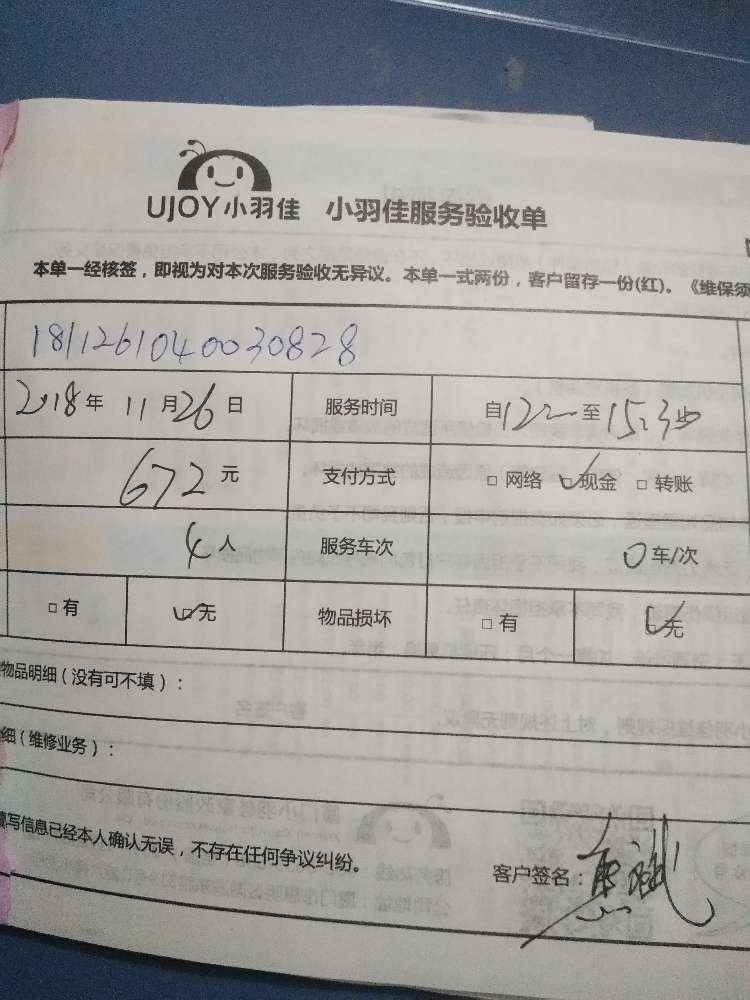 UJOY小羽佳 小羽佳服务验收单
本单一经核签，即视为对本次服务验收无异议。本单一式两份，客户留存一份(红)。《维保须
181126104003082 8
2018年 11月26日 服务时间 自12 至15:3
672元 支付方式 □ 网络 ☑现金 □ 转账
4人 服务车次 0车/次
□有 ☑无 物品损坏 □有 ☑无
物品明细（没有可不填）：
细（维修业务）：
填写信息已经本人确认无误，不存在任何争议纠纷。 客户签名：